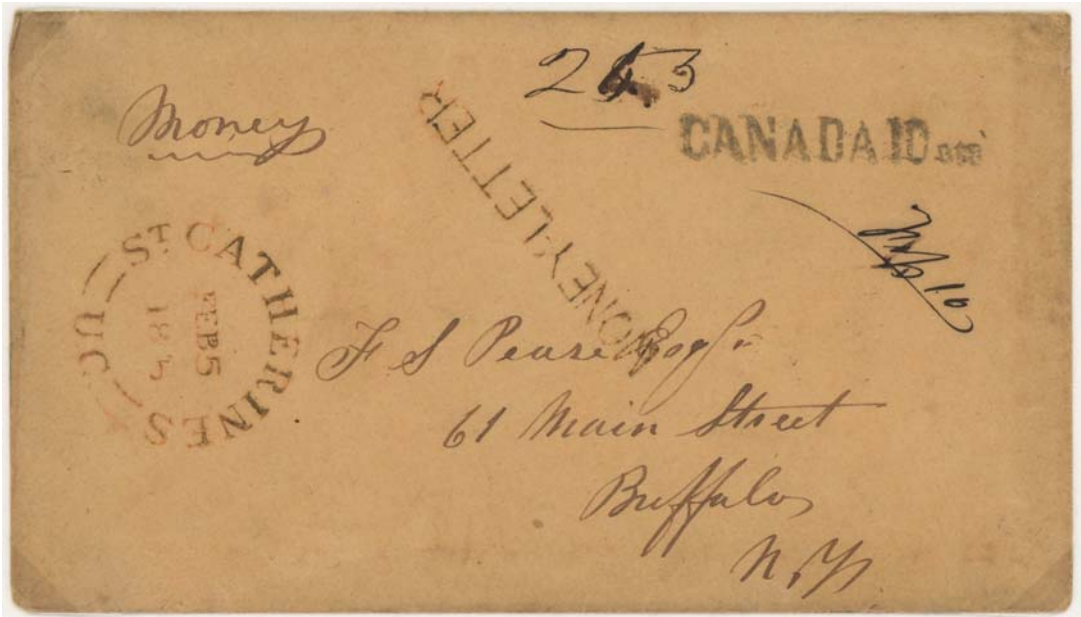 Money
MONEY-LETTER
CANADA 10 cts
ST CATHERINES
UC
FEB 5
F S Pease Esqr
61 Main Street
Buffalo
N.Y.